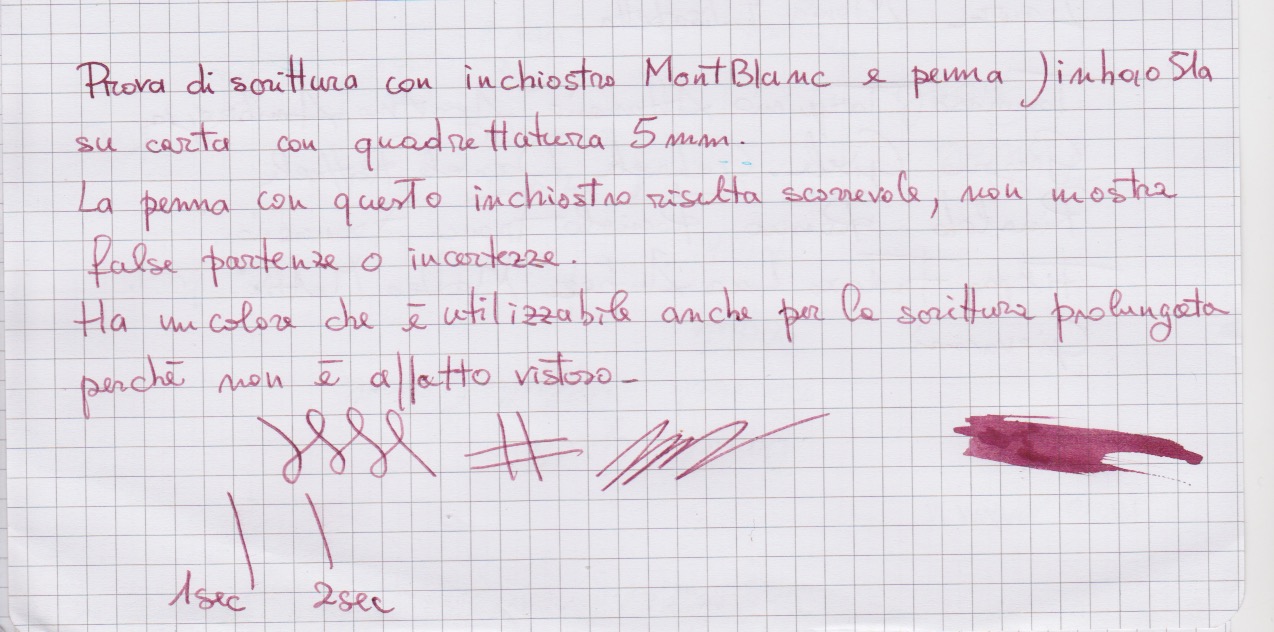 Prova di scrittura con inchiostro MontBlanc e penna Jinhao 51a
su carta con quadrettatura 5 mm.
La penna con questo inchiostro risulta scorrevole, non mostra
false partenze o incertezze.
Ha un colore che è utilizzabile anche per la scrittura prolungata
perché non è affatto vistoso_
1sec 2sec